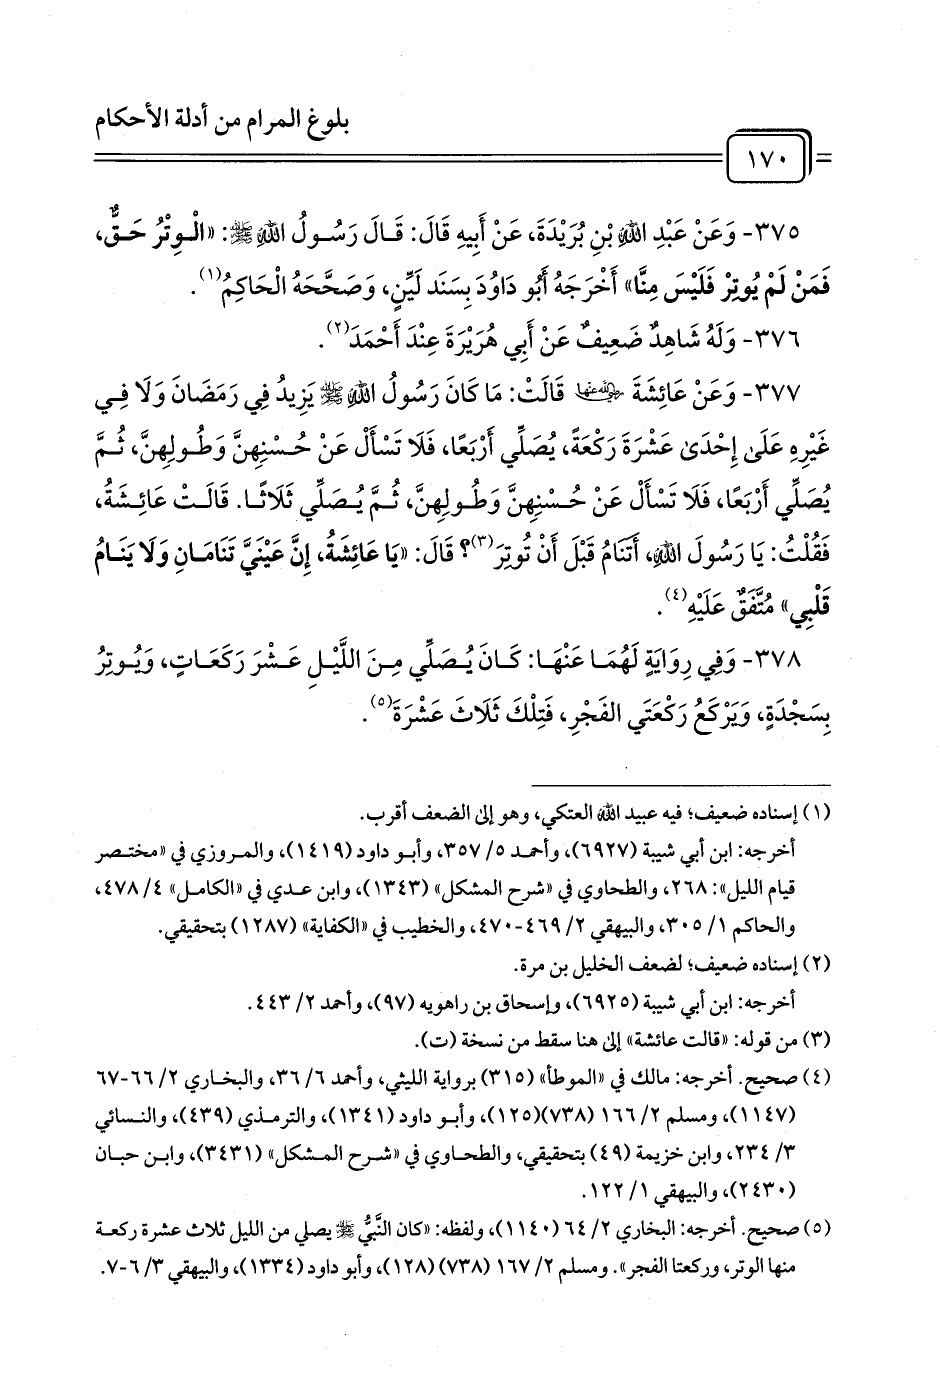 بلوغ المرام من أدلة الأحكام
١٧٠
٣٧٥- وَعَنْ عَبْدِ اللهِ بْنِ بُرَيْدَةَ، عَنْ أَبِيهِ قَالَ: قَالَ رَسُولُ اللهِ ﷺ: «الْوِتْرُ حَقٌّ،
فَمَنْ لَمْ يُوتِرْ فَلَيْسَ مِنَّا» أَخْرَجَهُ أَبُو دَاوُدَ بِسَنَد لَيِّنٍ، وَصَحَّحَهُ الْحَاكِمُ(١).
٣٧٦- وَلَهُ شَاهِدٌ ضَعِيفٌ عَنْ أَبِي هُرَيْرَةَ عِنْدَ أَحْمَدَ(٢).
٣٧٧- وَعَنْ عَائِشَةَ رضي الله عنها قَالَتْ: مَا كَانَ رَسُولُ اللهِ ﷺ يَزِيدُ فِي رَمَضَانَ وَلَا فِي
غَيْرِهِ عَلَى إِحْدَى عَشْرَةَ رَكْعَةً، يُصَلِّي أَرْبَعًا، فَلَا تَسْأَلْ عَنْ حُسْنِهِنَّ وَطُولِهِنَّ، ثُمَّ
يُصَلِّي أَرْبَعًا، فَلَا تَسْأَلْ عَنْ حُسْنِهِنَّ وَطُولِهِنَّ، ثُمَّ يُصَلِّي ثَلَاثًا. قَالَتْ عَائِشَةُ،
فَقُلْتُ: يَا رَسُولَ اللهِ، أَتَنَامُ قَبْلَ أَنْ تُوتِرَ(٣)؟ قَالَ: «يَا عَائِشَةُ، إِنَّ عَيْنَيَّ تَنَامَانِ وَلَا يَنَامُ
قَلْبِي» مُتَّفَقٌ عَلَيْهِ(٤).
٣٧٨- وَفِي رِوَايَةٍ لَهُمَا عَنْهَا: كَانَ يُصَلِّي مِنَ اللَّيْلِ عَشْرَ رَكَعَاتٍ، وَيُوتِرُ
بِسَجْدَةٍ، وَيَرْكَعُ رَكْعَتَي الفَجْرِ، فَتِلْكَ ثَلَاثَ عَشْرَةَ(٥).
(١) إسناده ضعيف؛ فيه عبيد الله العتكي، وهو إلى الضعف أقرب.
أخرجه: ابن أبي شيبة (٦٩٢٧)، وأحمد ٥/ ٣٥٧، وأبو داود (١٤١٩)، والمروزي في «مختصر
قيام الليل»: ٢٦٨، والطحاوي في «شرح المشكل» (١٣٤٣)، وابن عدي في «الكامل» ٤/ ٤٧٨،
والحاكم ١/ ٣٠٥، والبيهقي ٢/ ٤٦٩-٤٧٠، والخطيب في «الكفاية» (١٢٨٧) بتحقيقي.
(٢) إسناده ضعيف؛ لضعف الخليل بن مرة.
أخرجه: ابن أبي شيبة (٦٩٢٥)، وإسحاق بن راهويه (٩٧)، وأحمد ٢/ ٤٤٣.
(٣) من قوله: «قالت عائشة» إلى هنا سقط من نسخة (ت).
(٤) صحيح. أخرجه: مالك في «الموطأ» (٣١٥) برواية الليثي، وأحمد ٦/ ٣٦، والبخاري ٢/ ٦٦-٦٧
(١١٤٧)، ومسلم ٢/ ١٦٦ (٧٣٨)(١٢٥)، وأبو داود (١٣٤١)، والترمذي (٤٣٩)، والنسائي
٣/ ٢٣٤، وابن خزيمة (٤٩) بتحقيقي، والطحاوي في «شرح المشكل» (٣٤٣١)، وابن حبان
(٢٤٣٠)، والبيهقي ١/ ١٢٢.
(٥) صحيح. أخرجه: البخاري ٢/ ٦٤ (١١٤٠)، ولفظه: «كان النَّبيُّ ﷺ يصلي من الليل ثلاث عشرة ركعة
منها الوتر، وركعتا الفجر». ومسلم ٢/ ١٦٧ (٧٣٨) (١٢٨)، وأبو داود (١٣٣٤)، والبيهقي ٣/ ٦-٧.